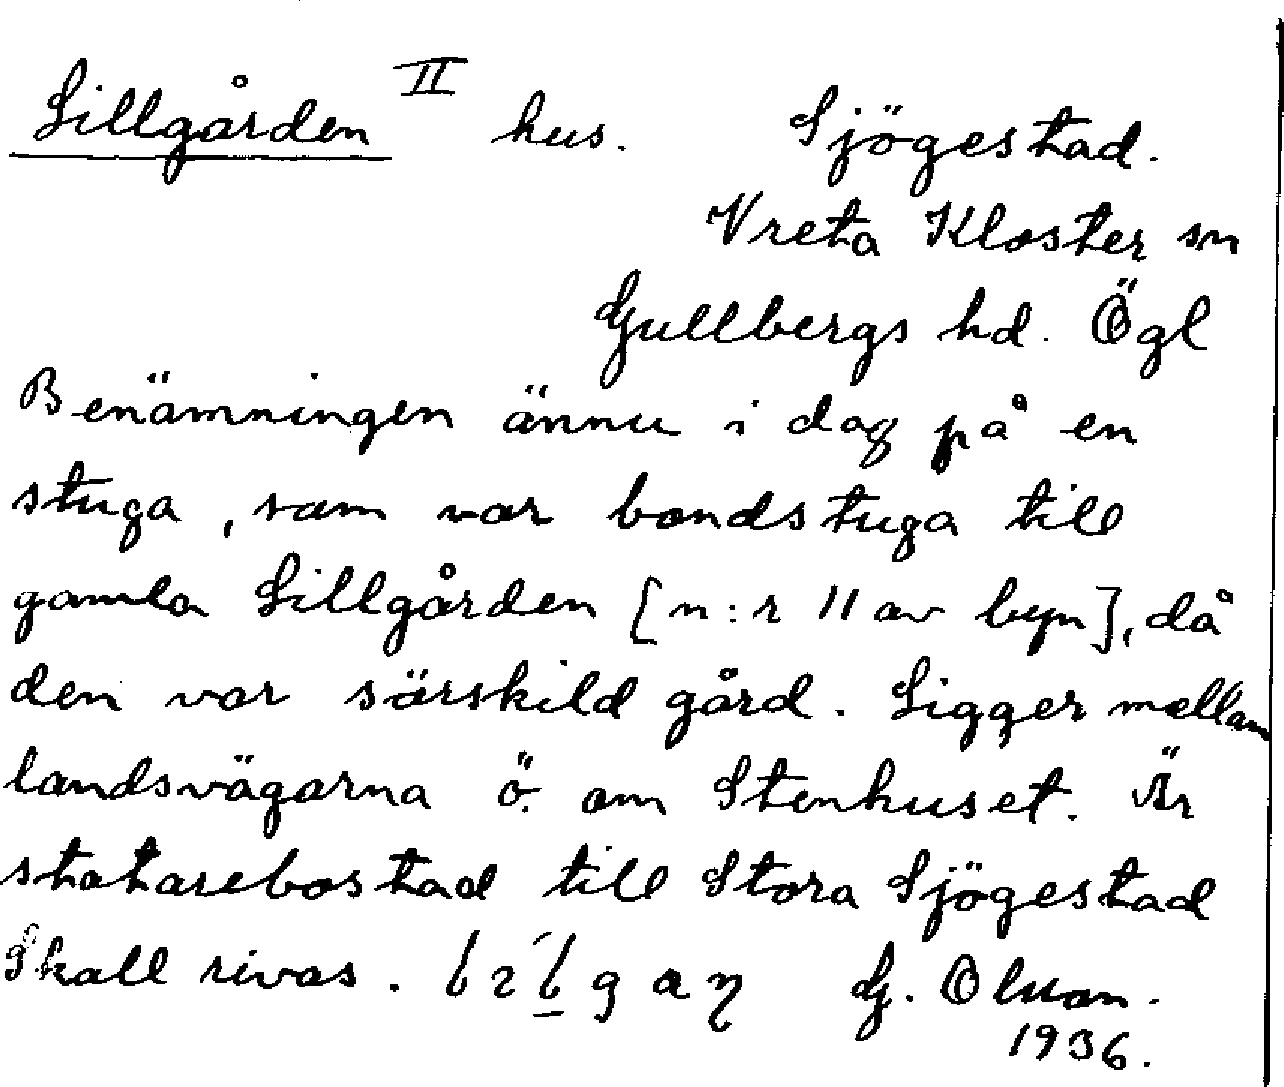 Lillgården II hus. Sjögestad.
Vreta Kloster sn
Gullbergs hd. Ögl
Benämningen ännu i dag på en
stuga, som var bondstuga till
gamla Lillgården [n:r 11 av byn], då
den var särskild gård. Ligger mellan
landsvägarna ö. om Stenhuset. Är
statarebostad till Stora Sjögestad
Skall rivas. G. Olsson.
1936.